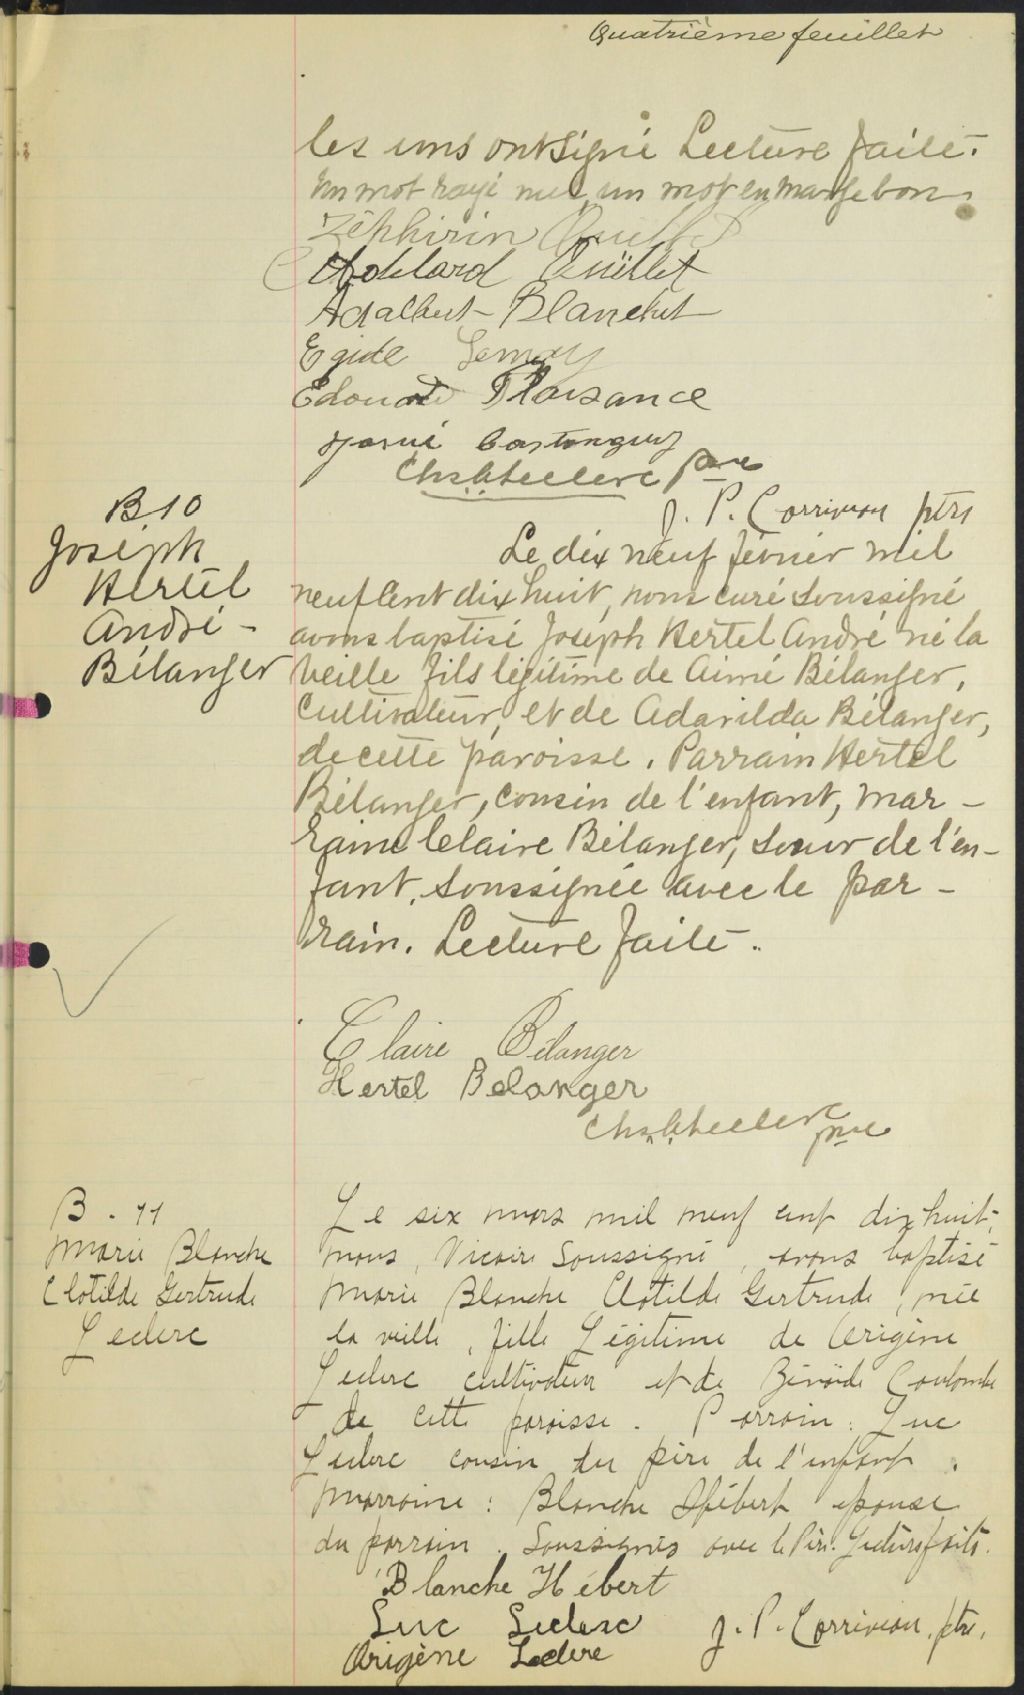 Quatrième feuillet
les uns ont signé Lecture faite.
un mot rayé nul, un mot en marge bon.
Zéphirin Ouellet
Adélard Ouellet
Adalbert Blanchet
Egide Lemay
Edouard Plaisance
Josué Castonguay
Chs. Leclerc ptre
J. P. Corriveau ptre
B 10
Joseph
Hertel
André -
Bélanger
Le dix neuf février mil
neuf cent dix huit, nous curé soussigné
avons baptisé Joseph Hertel André né la
veille fils légitime de Aimé Bélanger,
cultivateur, et de Adavilda Bélanger,
de cette paroisse. Parrain Hertel
Bélanger, cousin de l'enfant, mar-
raine Claire Bélanger, soeur de l'en-
fant, soussignée avec le par-
rain. Lecture faite.
Claire Bélanger
Hertel Belanger
ptre
B. 11
Marie Blanche
Clotilde Gertrude
Leclerc
Le six mars mil neuf cent dix huit,
nous, Vicaire soussigné, avons baptisé
Marie Blanche Clotilde Gertrude, née
la veille, fille Légitime de Origène
Leclerc cultivateur et de Zénaïde Coulombe
de cette paroisse. Parrain: Luc
Leclerc cousin du père de l'enfant.
Marraine: Blanche Hébert épouse
du parrain. Soussignés avec le Père. Lecture faite.
Blanche Hébert
Luc Leclerc
J. P. Corriveau, ptre,
Origène Leclerc